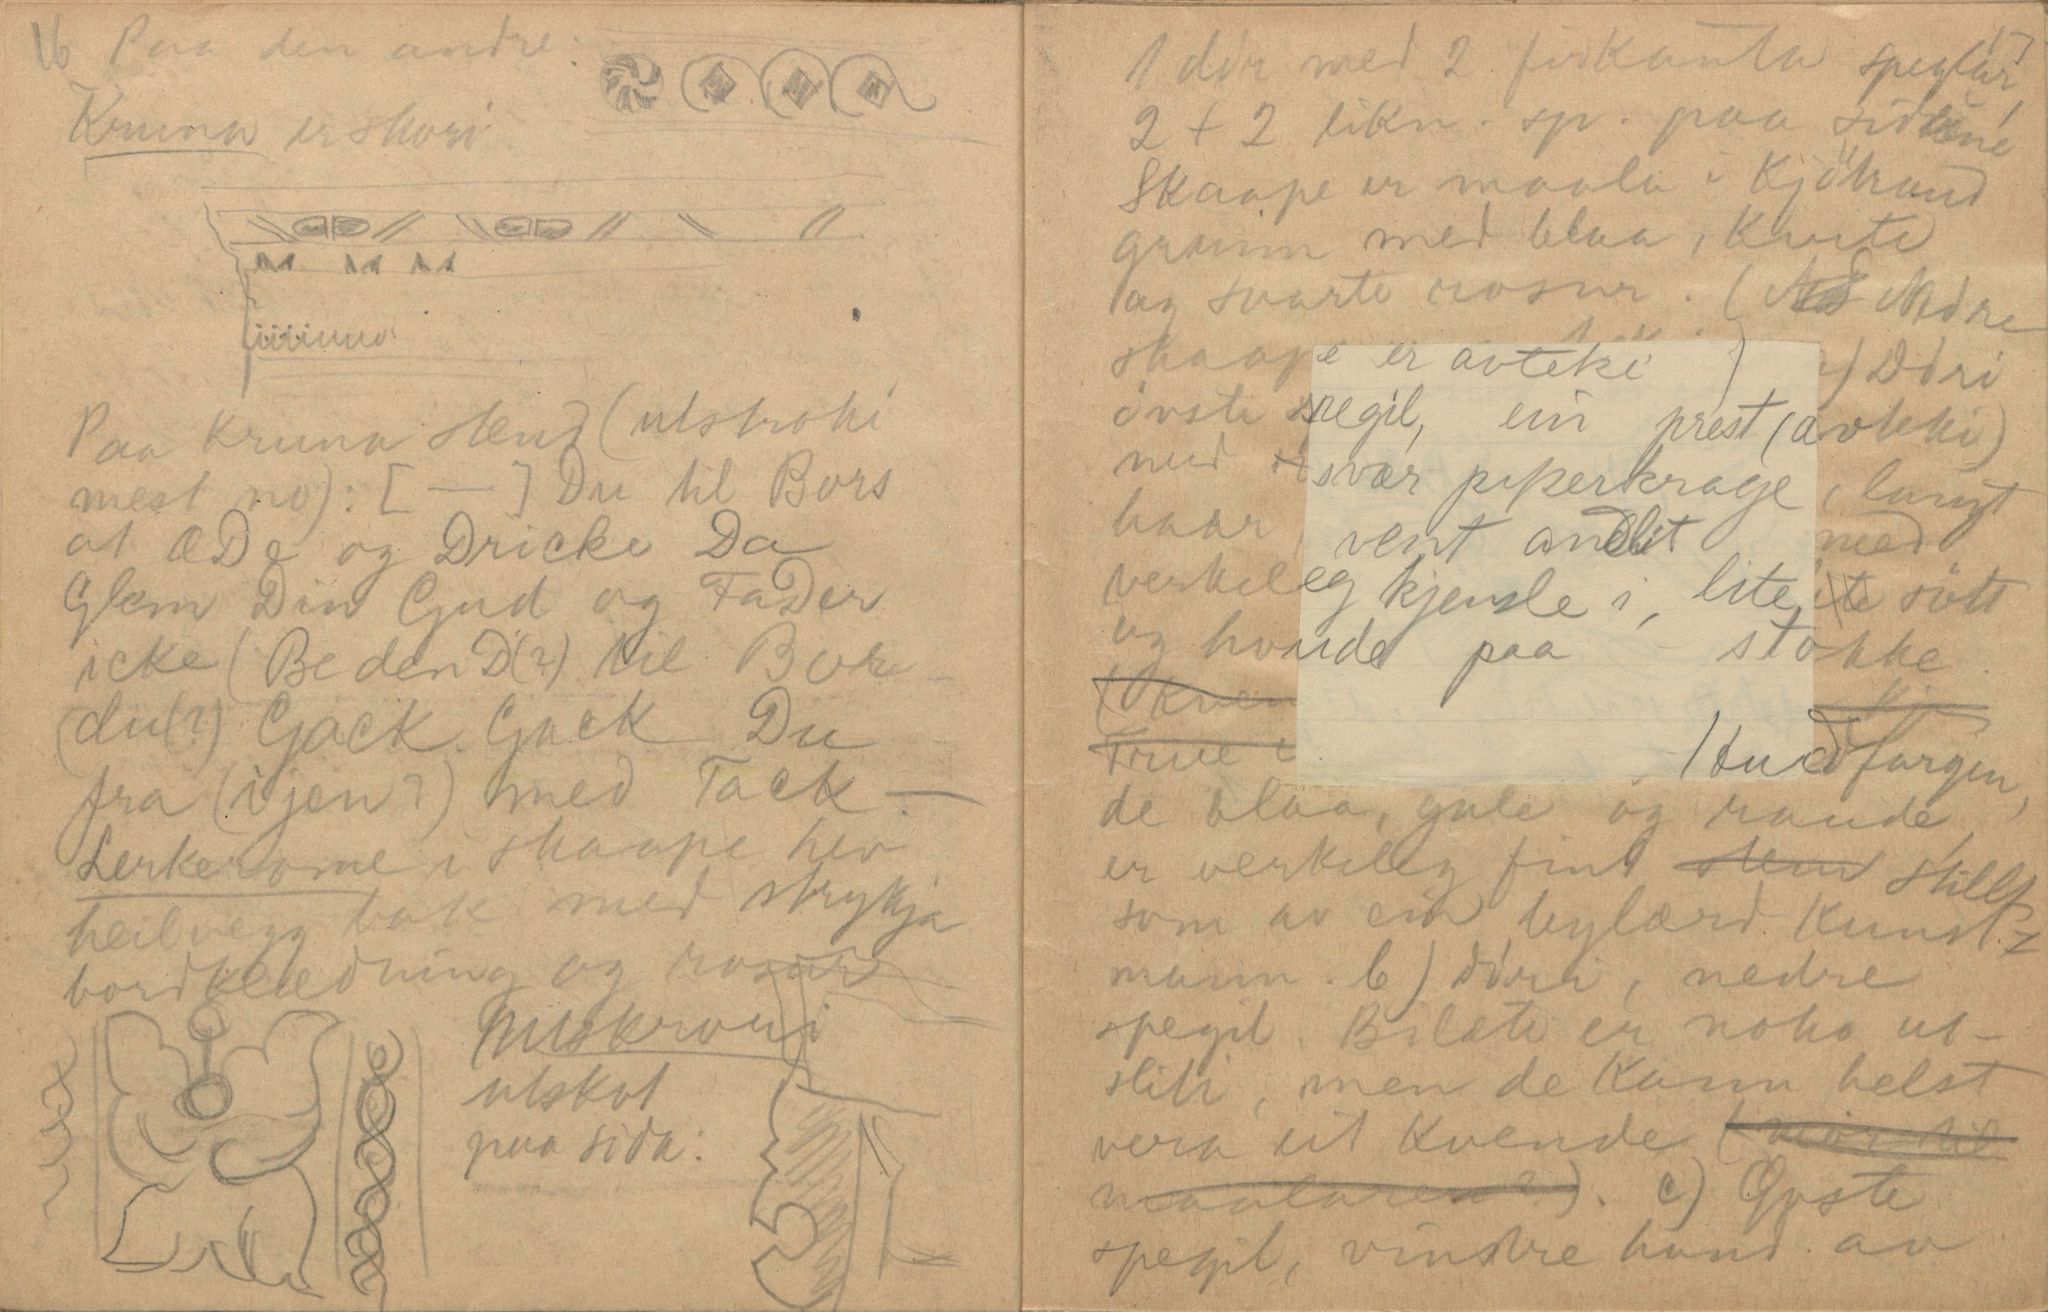 16 Paa den andre:
Kruna er skori
Paa Kruna stend (utstroki
mest no): [ — ] Du til Bors
at æDe og Dricke Da
Glem Din Gud og FaDer
icke (Be den D(?) til Bor
(du(?) Gack Gack Du
fra (ijen?) med Tack —
Lerkerome i skaape hev
heilvegg bak med strykja
bordklædning og rosur
Midskrone i
utskot
paa sida:
1 dør med 2 firkanta speglar,
2 + 2 likn. sp. paa sidune
Skaape er maala i Kjø
grunn med blaa, kvite
og svarte rosur. ( Nedre
skaape er avteki ) a) Döri
övste spegil, ein prest (avteki)
med svær piperkrage, langt
haar, vent andlit med
verkileg kjensle i, lite, sött
og honde paa stokke.
(Kven
True
Hudfargen,
de blaa, gule og raude,
er verkileg fint stillt
som av ein bylærd kunst-
mann. b) döri, nedre
spegil. Bilæte er noko ut-
sliti, men de kann helst
vera eit kvende (
maalaren?). c) Øvste
spegil, vinstre hand av